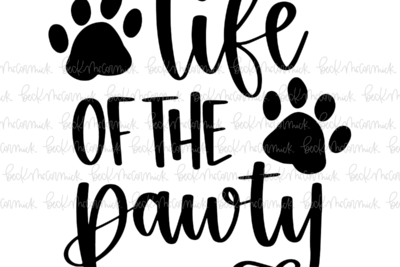 life
OF THE
pawty